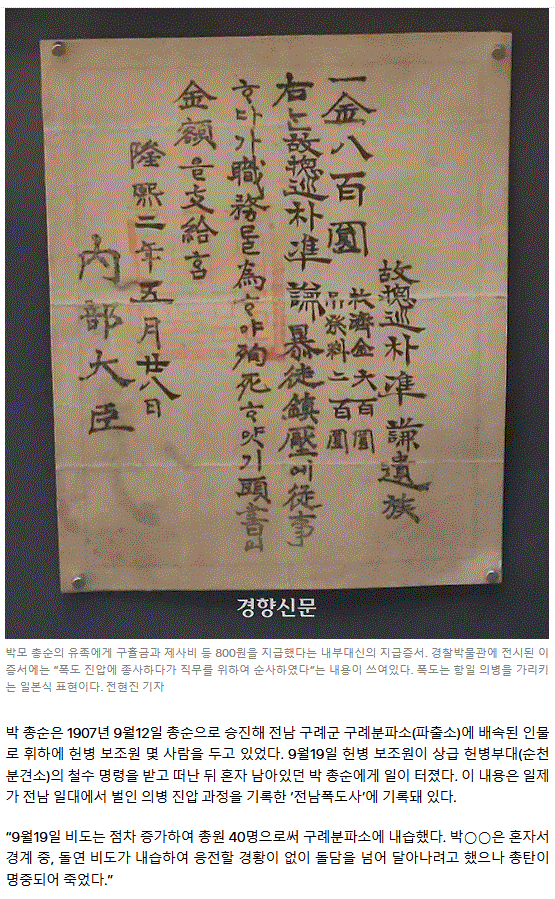 故摠巡朴準謙遺族
一金八百圜
救濟金六百圜
吊祭料二百圜
右ᄂᆞᆫ故摠巡朴準謙暴徒鎭壓에從事
ᄒᆞ다가職務를爲ᄒᆞ야殉死ᄒᆞ얏기頭書의
金額을支給홈
隆熙二年五月廿八日
內部大臣
경향신문
박모 총순의 유족에게 구휼금과 제사비 등 800원을 지급했다는 내부대신의 지급증서. 경찰박물관에 전시된 이
증서에는 “폭도 진압에 종사하다가 직무를 위하여 순사하였다”는 내용이 쓰여있다. 폭도는 항일 의병을 가리키
는 일본식 표현이다. 전현진 기자
박 총순은 1907년 9월12일 총순으로 승진해 전남 구례군 구례분파소(파출소)에 배속된 인물
로 휘하에 헌병 보조원 몇 사람을 두고 있었다. 9월19일 헌병 보조원이 상급 헌병부대(순천
분견소)의 철수 명령을 받고 떠난 뒤 혼자 남아있던 박 총순에게 일이 터졌다. 이 내용은 일제
가 전남 일대에서 벌인 의병 진압 과정을 기록한 ‘전남폭도사’에 기록돼 있다.
“9월19일 비도는 점차 증가하여 총원 40명으로써 구례분파소에 내습했다. 박○○은 혼자서
경계 중, 돌연 비도가 내습하여 응전할 경황이 없이 돌담을 넘어 달아나려고 했으나 총탄이
명중되어 죽었다.”